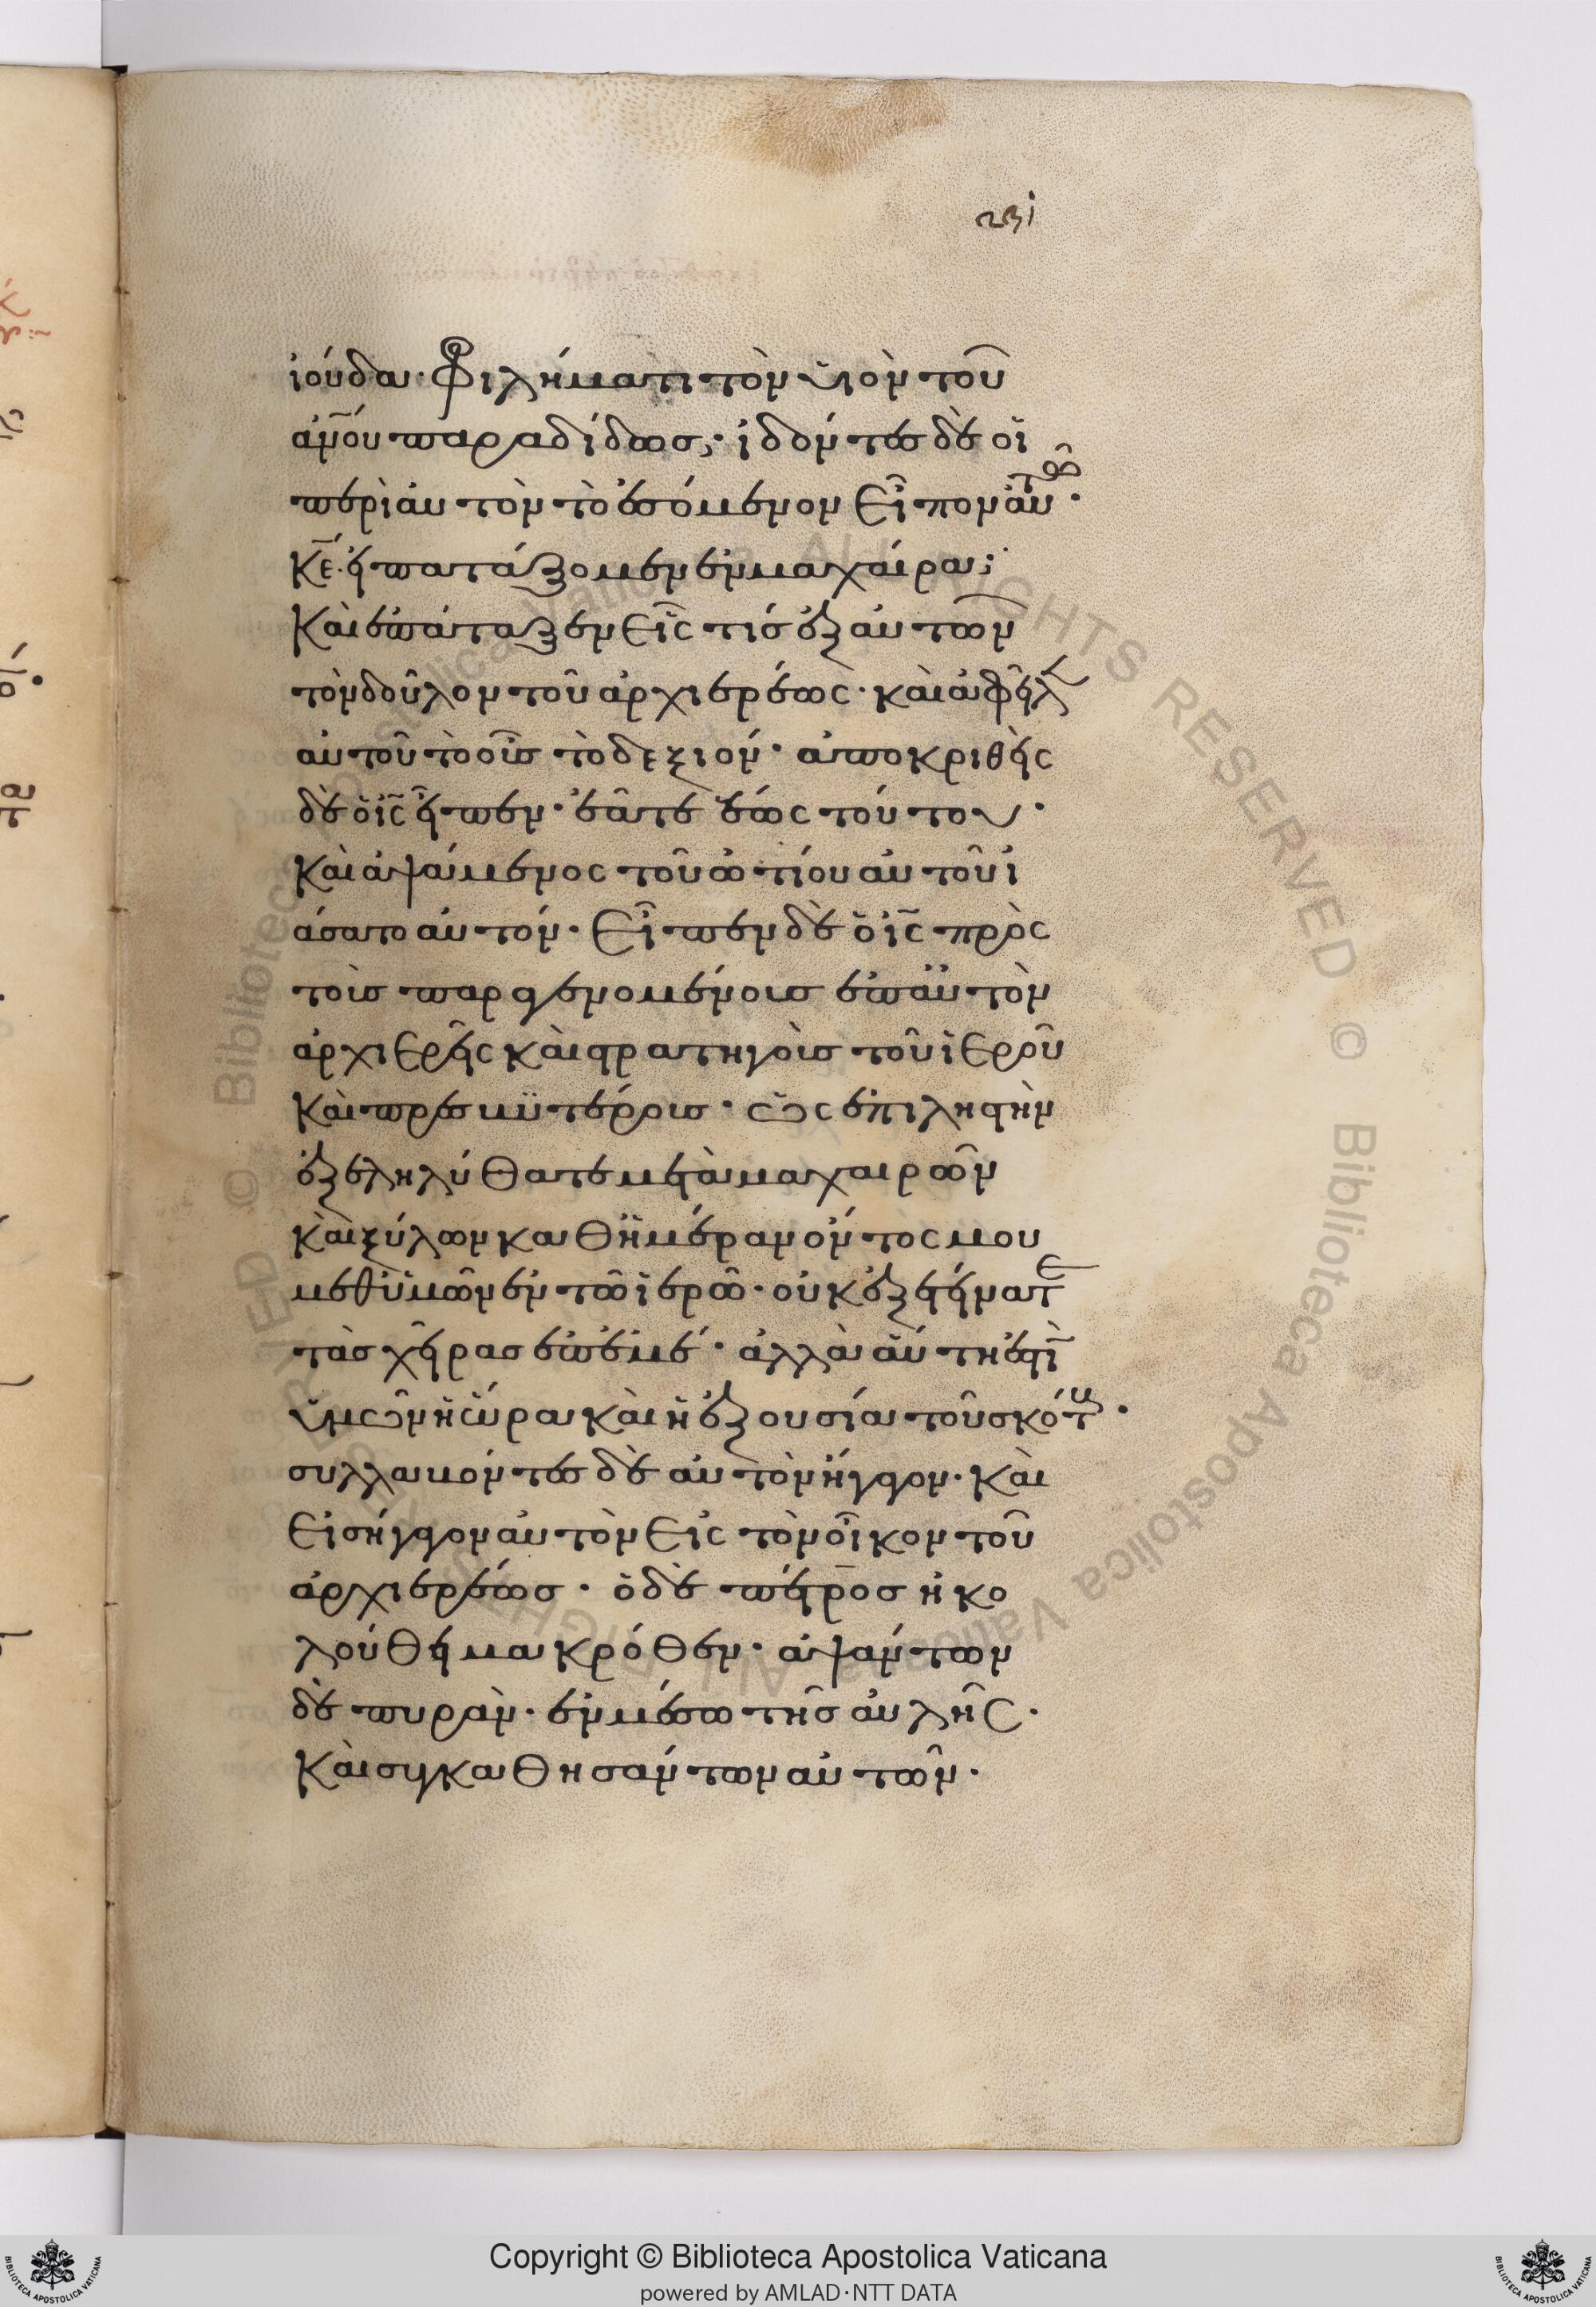 231
ἰούδα· φιλήματι τὸν ὑιὸν τοῦ
ἀνου παραδίδωσ· ἰδόντεσ δὲ οἱ
περὶ ἀυτὸν τὸ ἐσόμενον εἶπον ἀυτῶ·
κε· ἐι πατάξομεν ἐν μαχαίρα;
καὶ ἐπάταξεν εἷς τίσ ἐξ ἀυτῶν
τὸν δοῦλον τοῦ ἀρχιερέως· καὶ ἀφεῖλ
ἀυτοῦ τὸ οὖσ τὸ δεξιόν· ἀποκριθεὶς
δὲ ὁ ις εἶπεν· ἐᾶτε ἕως τούτου·
καὶ ἁψάμενος τοῦ ὠτίου ἀυτοῦ ἰ
άσατο ἀυτόν· εἶπεν δὲ ὁ ις πρὸς
τοὺσ παραγενομένουσ ἐπ ἀυτὸν
ἀρχιερεῖς καὶ στρατηγοὺσ τοῦ ἱεροῦ
καὶ πρεσβυτέρουσ· ὡς ἐπι ληστὴν
ἐξεληλύθατε μετὰ μαχαιρῶν
καὶ ξύλων καθ ἡμέραν ὄντος μου
μεθ ὑμῶν ἐν τῶ ἱερῶ· οὐκ ἐξετείνατε
τὰσ χεῖρασ ἐπ ἐμέ· ἀλλὰ ἅυτη ἐστὶ
ὑμῶν ἡ ὥρα καὶ ἡ ἐξουσία τοῦ σκότους·
συλλαβόντεσ δὲ ἀυτὸν ἤγαγον· καὶ
εἰσήγαγον ἀυτὸν εἰς τὸν οἶκον τοῦ
ἀρχιερέωσ· ὁ δὲ πέτροσ ἠκο
λούθει μακρόθεν· ἁψάντων
δὲ πυρὰν· ἐν μέσω τῆσ ἀυλῆς·
καὶ συγκαθησάντων ἀυτῶν·
Copyright © Biblioteca Apostolica Vaticana
powered by AMLAD·NTT DATA